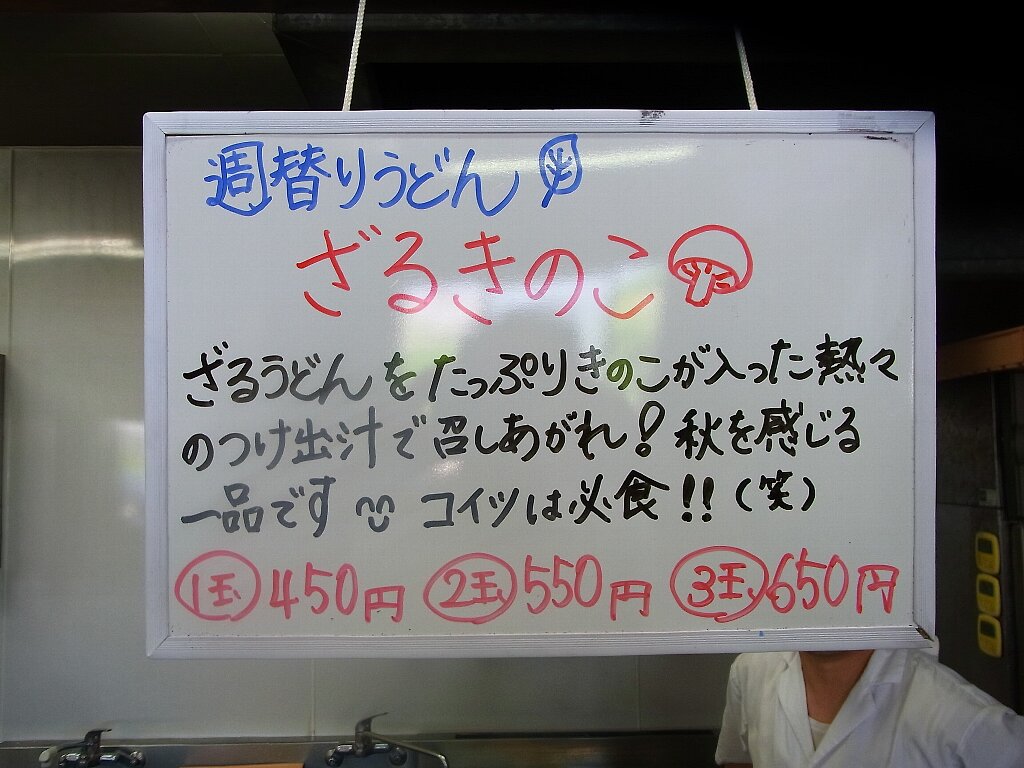 週替りうどん
ざるきのこ
ざるうどんをたっぷりきのこが入った熱々
のつけ出汁で召しあがれ！秋を感じる
一品です コイツは必食！！（笑）
1玉 450円 2玉 550円 3玉 650円